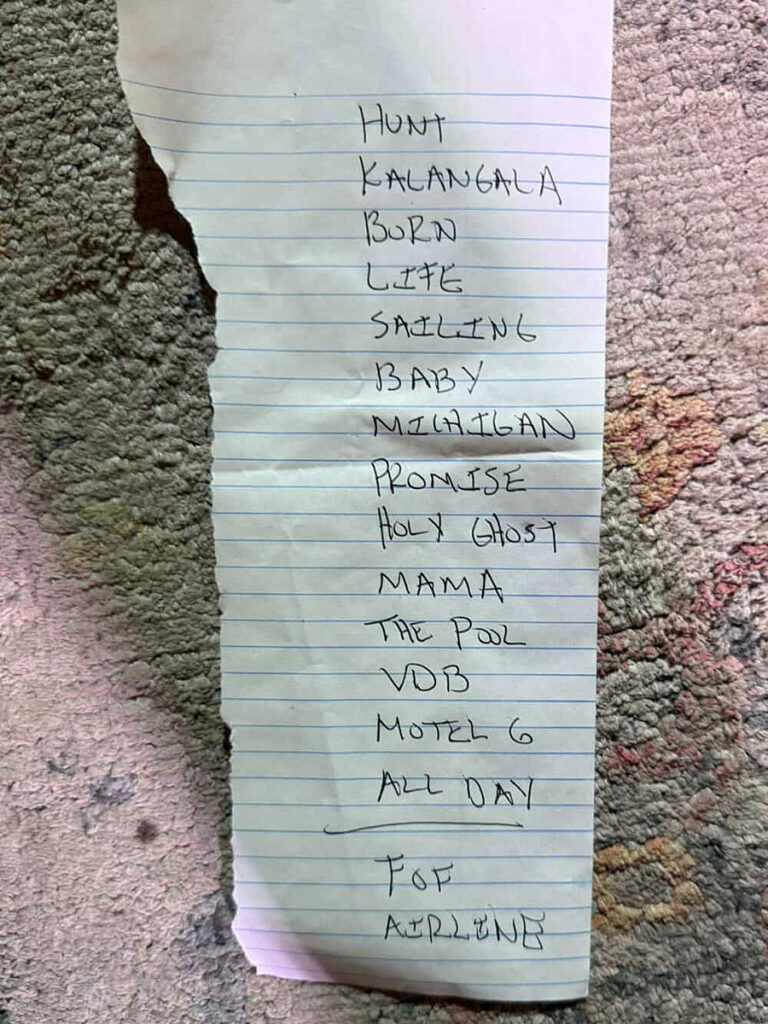 HUNT
KALANGALA
BURN
LIFE
SAILING
BABY
MICHIGAN
PROMISE
HOLY GHOST
MAMA
THE POOL
VDB
MOTEL 6
ALL DAY
FOF
AIRLINE